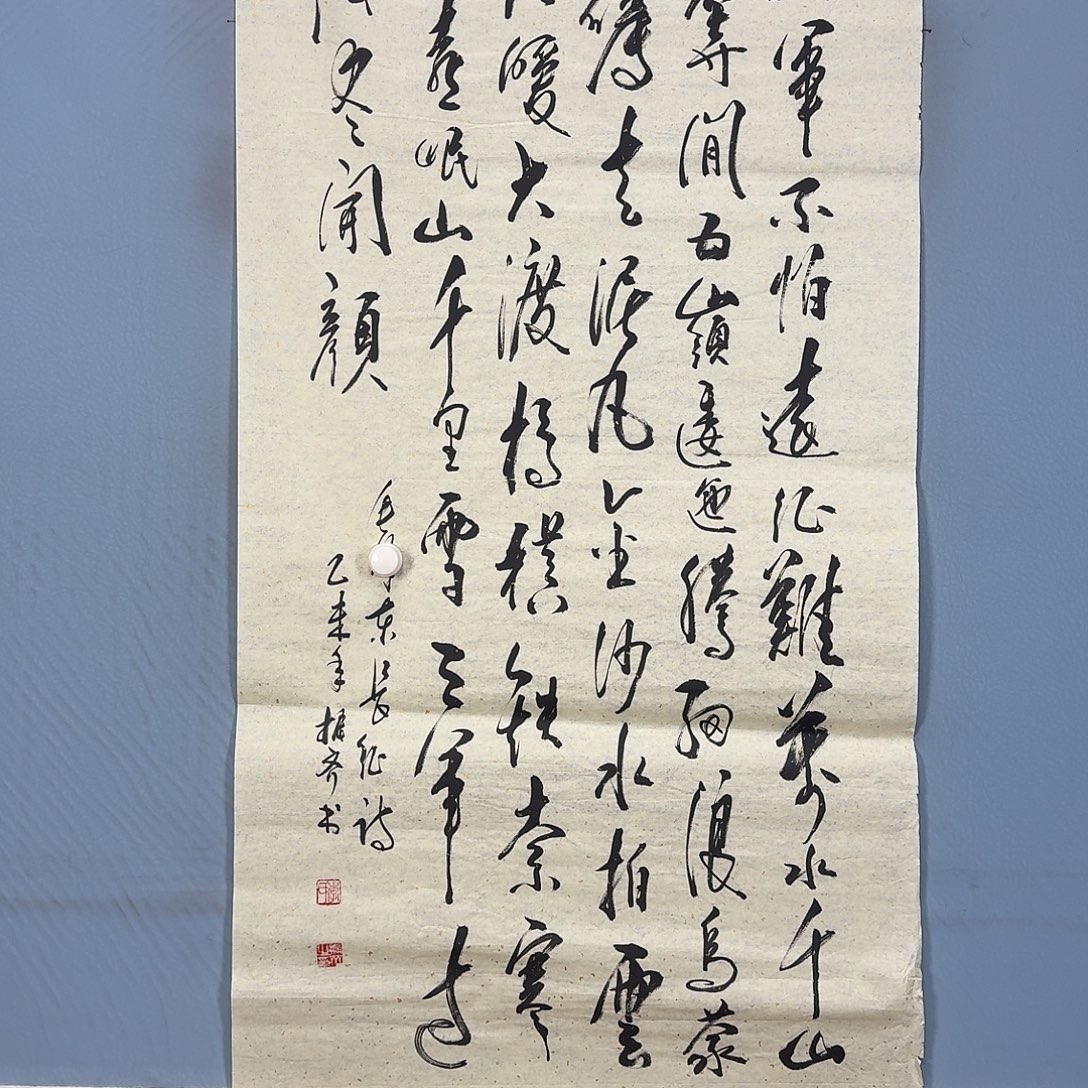 軍不怕遠征難萬水千山
等閒五嶺逶迤騰細浪烏蒙
礴走泥丸金沙水拍雲
暖大渡橋橫鉄索寒
喜岷山千里雪三軍過
後尽開顏
毛東長征詩
乙未年齐书